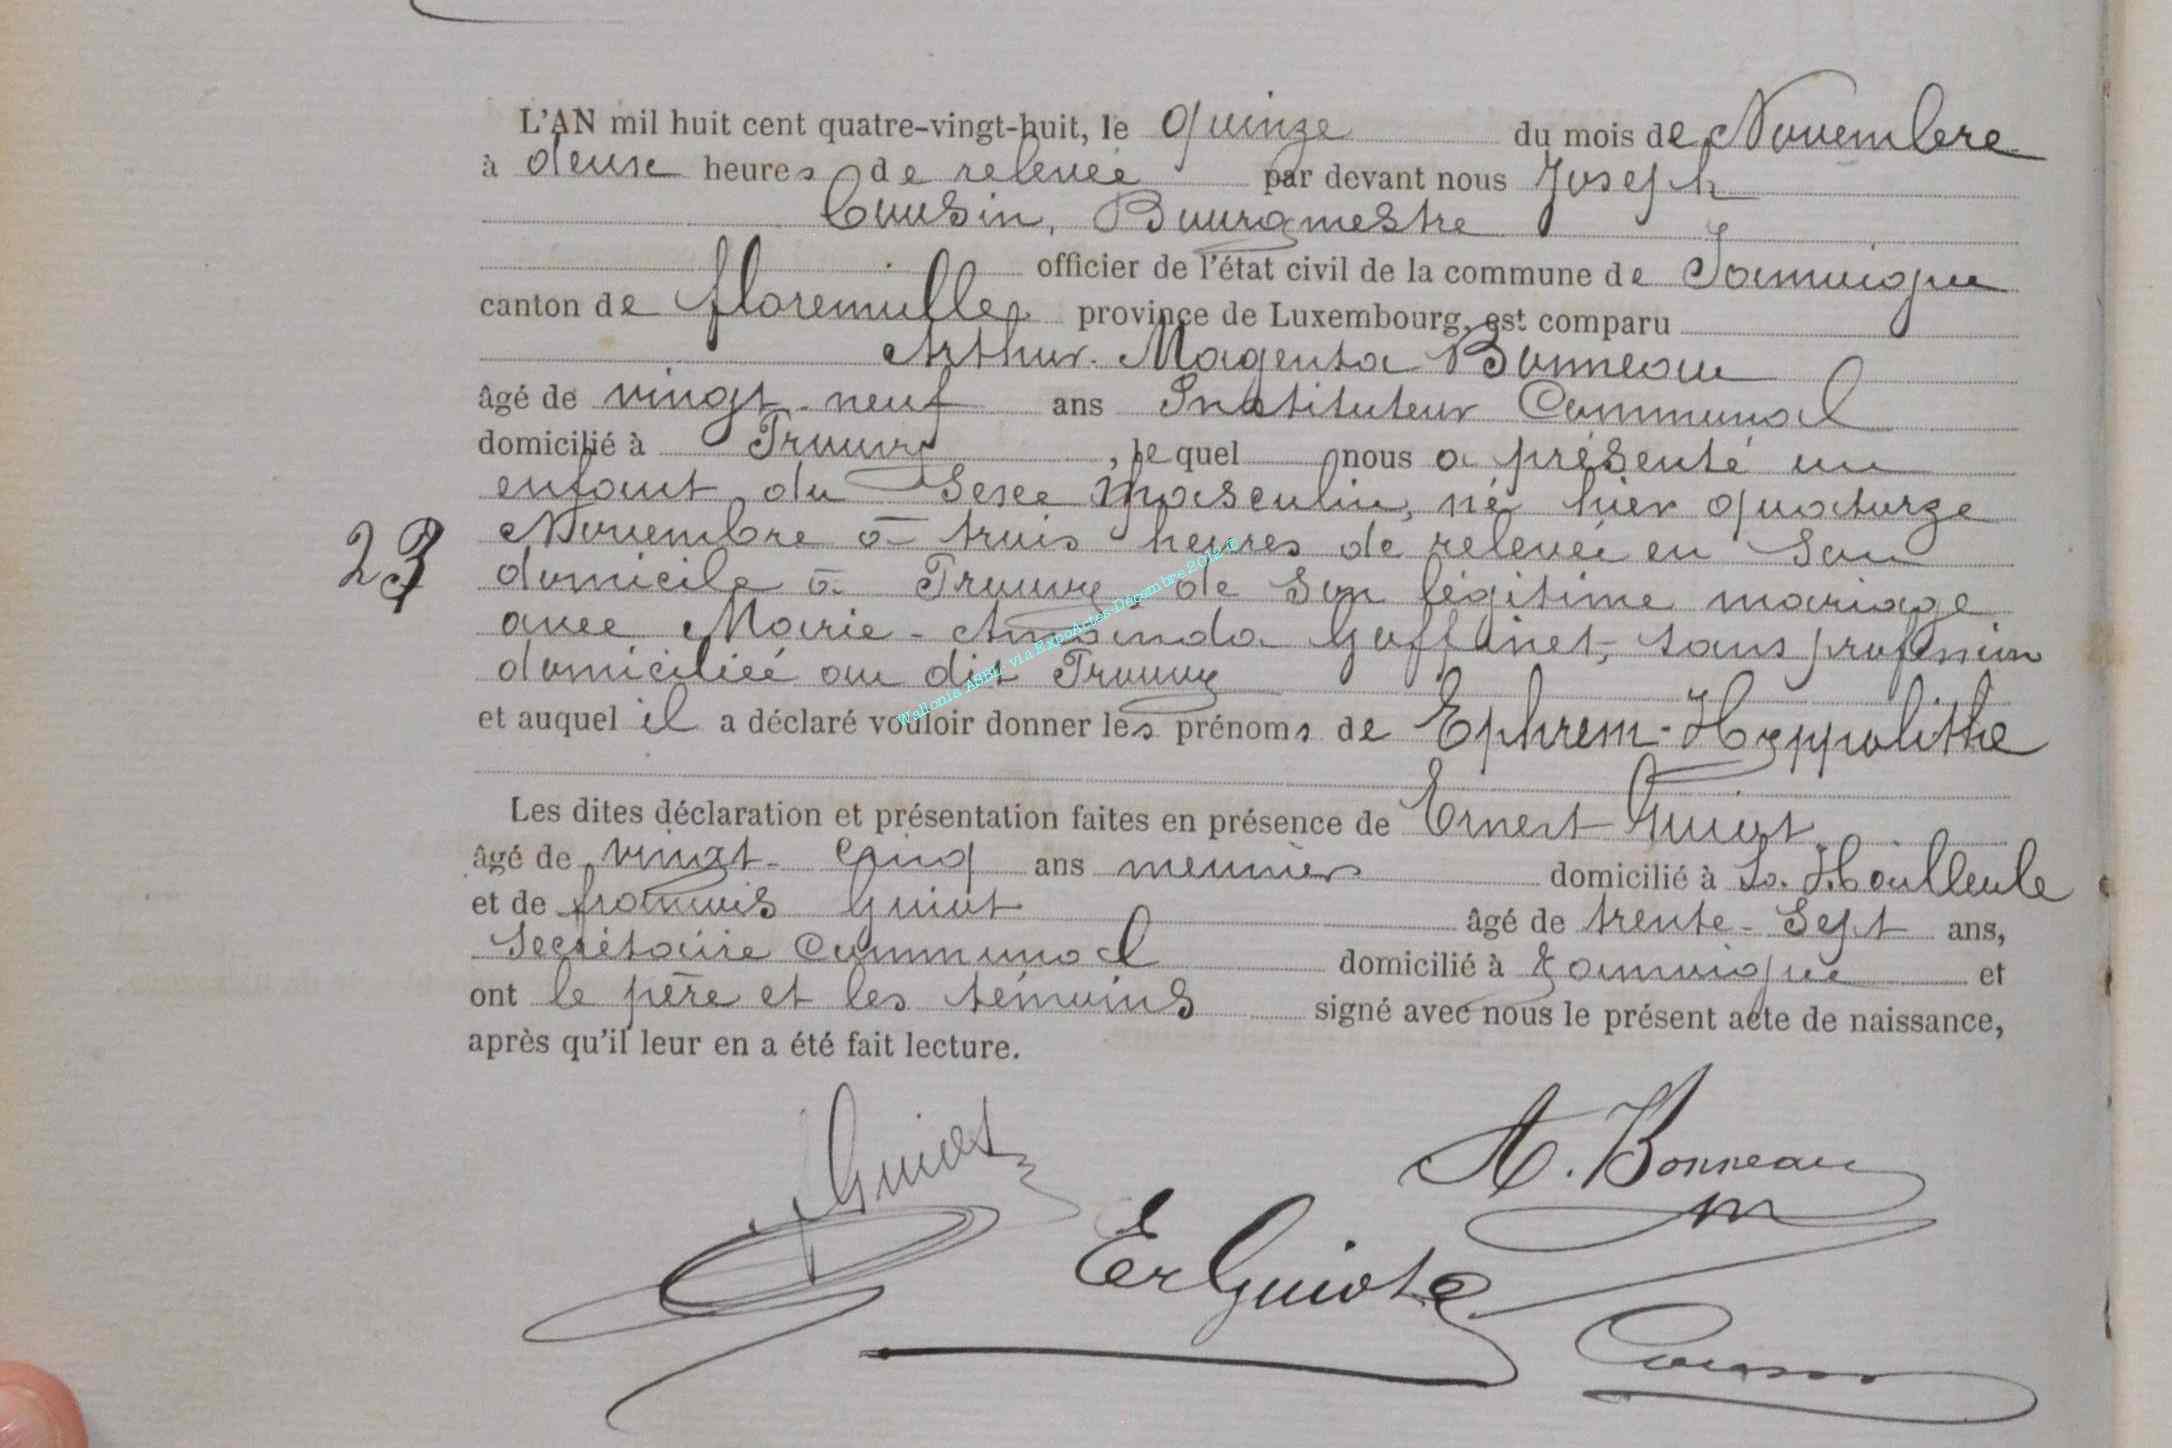 L'AN mil huit cent quatre-vingt-huit, le quinze du mois de Novembre
à deux heures de relevée par devant nous Joseph
Cousin, Bourgmestre
officier de l'état civil de la commune de Jamoigne
canton de florenville, province de Luxembourg, est comparu
Arthur-Magenta Bonneau
âgé de vingt-neuf ans Instituteur Communal
domicilié à Prouvy, lequel nous a présenté un
enfant du Sexe masculin, né hier quatorze
Novembre à trois heures de relevée en son
23
domicile à Prouvy de son légitime mariage
avec Marie-Amanda Goffinet, sans profession
domiciliée au dit Prouvy
et auquel il a déclaré vouloir donner les prénoms de Ephrem-Hyppolithe
Les dites déclaration et présentation faites en présence de Ernest Guiot
âgé de vingt-cinq ans meunier domicilié à La Hailleule
et de françois Guiot âgé de trente-Sept ans,
Secrétaire Communal domicilié à Jamoigne et
ont le père et les témoins signé avec nous le présent acte de naissance,
après qu'il leur en a été fait lecture.
Guiot
A. Bonneau
Er Guiot
Cousin
Wallonia ASBL, via ExpoActes-Décembre